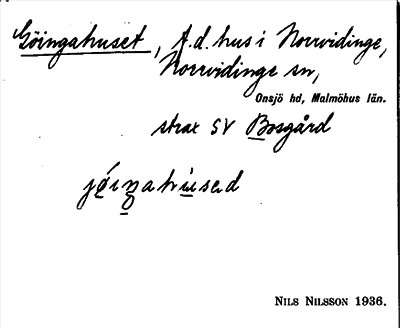 Göingahuset, f.d. hus i Norrvidinge,
Norrvidinge sn,
Onsjö hd, Malmöhus län.
strax SV Bosgård
NILS NILSSON 1936.